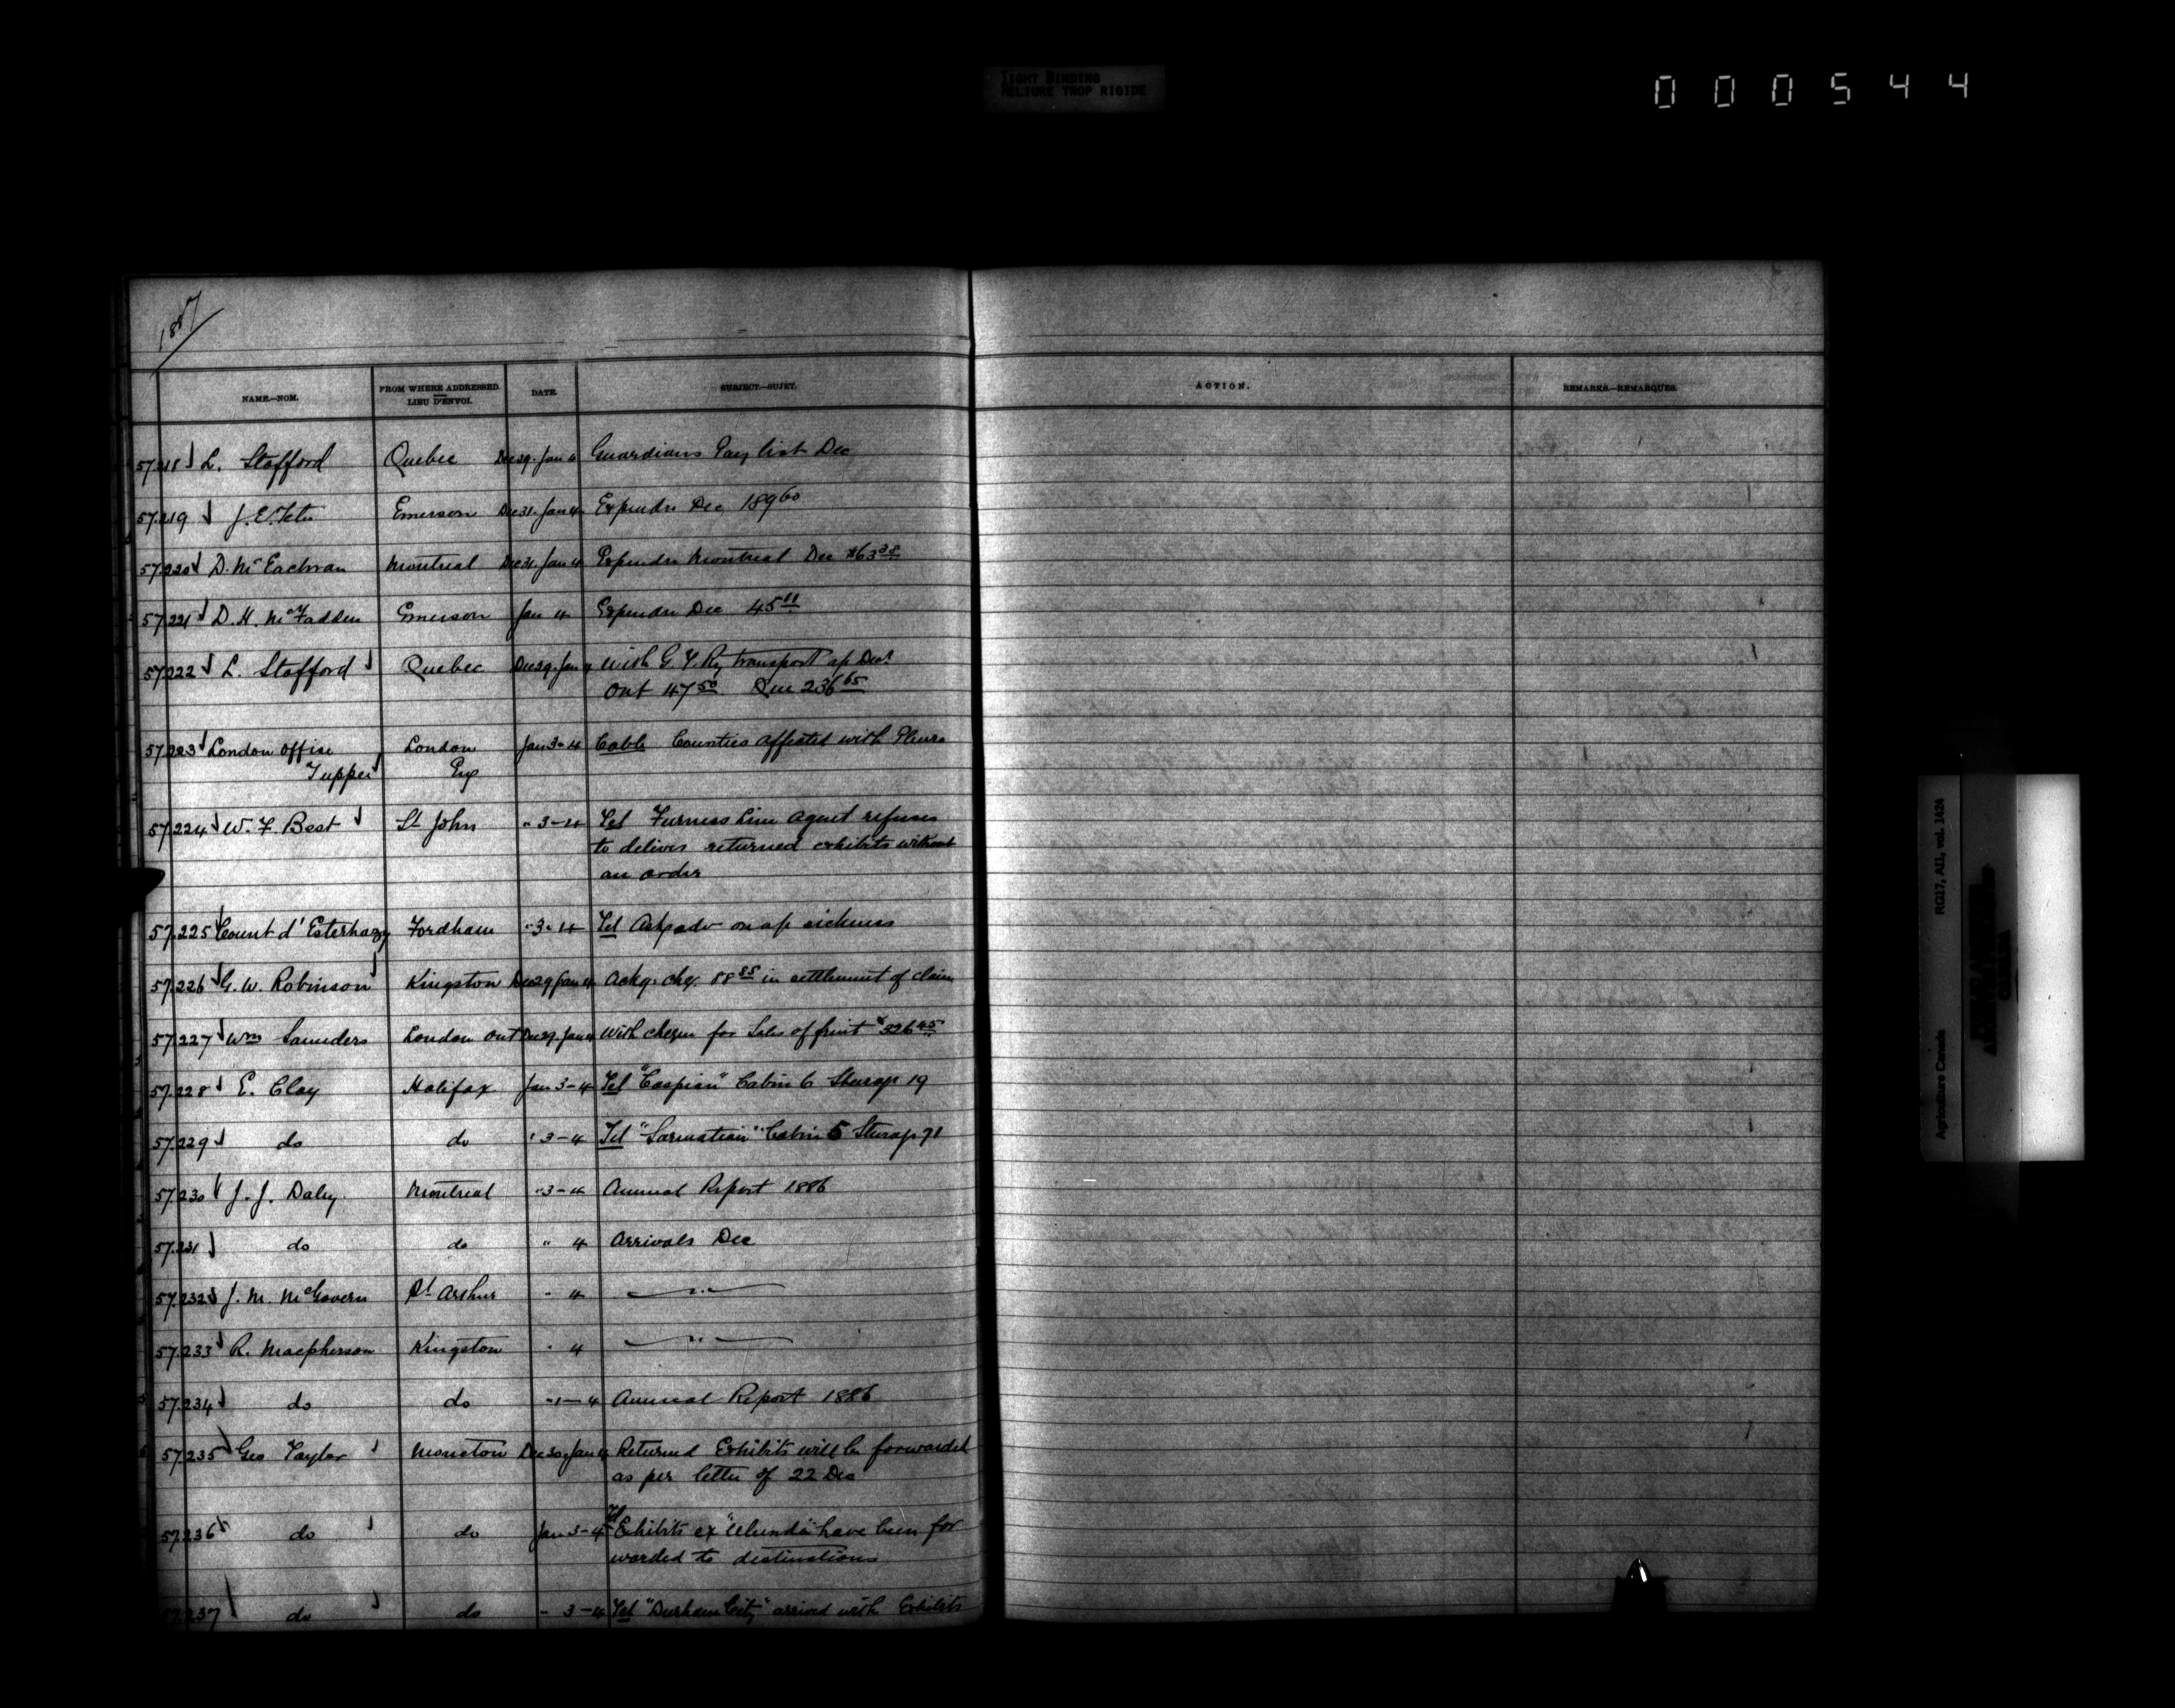 TIGHT BINDING
RELIURE TROP RIGIDE
000544
1887
NAME.—NOM. FROM WHERE ADDRESSED. LIEU D'ENVOI. DATE. SUBJECT.—SUJET. ACTION. REMARKS.—REMARQUES.
57.218 L. Stafford Quebec Dec 29. Jan 4 Guardians Pay list Dec
57.219 J. E. Tetu Emerson Dec 31. Jan 4 Expendre Dec 189 60
57.220 D. McEachran Montreal Dec 31. Jan 4 Expendre Montreal Dec
57.221 D. H. McFadden Emerson Jan 4 Expendre Dec 45 11
57.222 L. Stafford Quebec Dec 29. Jan 4 With G. T. Ry transport a/c Decr
Ont 47 50 Que 236 65
57.223 London Office London Jan 3-4 Cable Counties affected with Pleuro
Tupper Eng
57.224 W. F. Best St John " 3-4 Tel Furness Line Agent refuses
to deliver returned exhibits without
an order
57.225 Count d'Esterhazy Fordham " 3-4 Tel Asks adv on a/c sickness
57.226 G. W. Robinson Kingston Dec 29 Jan 4 Ackg. chq. 88 88 in settlement of claim
57.227 Wm Saunders London Ont Dec 29. Jan 4 With cheque for Sales of fruit $326 45
57.228 E. Clay Halifax Jan 3-4 Tel "Caspian" Cabin 6 Steerage 19
57.229 do do " 3-4 Tel "Sarmatian" Cabin 5 Steerage 71
57.230 J. J. Daley Montreal " 3-4 Annual Report 1886
57.231 do do " 4 Arrivals Dec
57.232 J. M. McGovern Pt Arthur " 4 — " —
57.233 R. Macpherson Kingston " 4 — " —
57.234 do do " 1-4 Annual Report 1886
57.235 Geo Taylor Moncton Dec 30. Jan 4 Returned Exhibits will be forwarded
as per letter of 22 Dec
57.236 do do Jan 3-4 Tel Exhibits ex "Ulunda" have been for
warded to destinations
57.237 do do " 3-4 Tel "Durham City" arrived with Exhibits
Agriculture Canada RG17, AII, vol. 1424